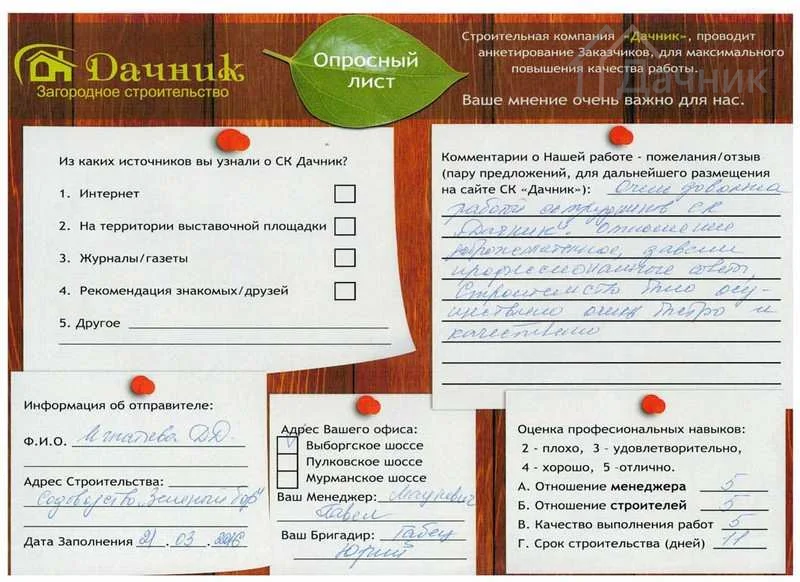 Дачник
Загородное строительство
Опросный
лист
Строительная компания «Дачник», проводит
анкетирование Заказчиков, для максимального
повышения качества работы.
Ваше мнение очень важно для нас.
Дачник
Из каких источников вы узнали о СК Дачник?
1. Интернет
2. На территории выставочной площадки
3. Журналы/газеты
4. Рекомендация знакомых/друзей
5. Другое
Комментарии о Нашей работе - пожелания/отзыв
(пару предложений, для дальнейшего размещения
на сайте СК «Дачник»): Очень довольна
работой сотрудников СК
"Дачник". Отношение
доброжелательное,
профессиональные советы.
Строительство было осу-
ществлено очень быстро и
качественно
Информация об отправителе:
Ф.И.О. Игнатьева Д.Д.
Адрес Строительства:
Садоводство "Зеленый бор"
Дата Заполнения 21.03.2016
Адрес Вашего офиса:
V Выборгское шоссе
Пулковское шоссе
Мурманское шоссе
Ваш Менеджер:
Павел
Ваш Бригадир:
Юрий
Оценка профессиональных навыков:
2 - плохо, 3 - удовлетворительно,
4 - хорошо, 5 -отлично.
А. Отношение менеджера 5
Б. Отношение строителей 5
В. Качество выполнения работ 5
Г. Срок строительства (дней) 11